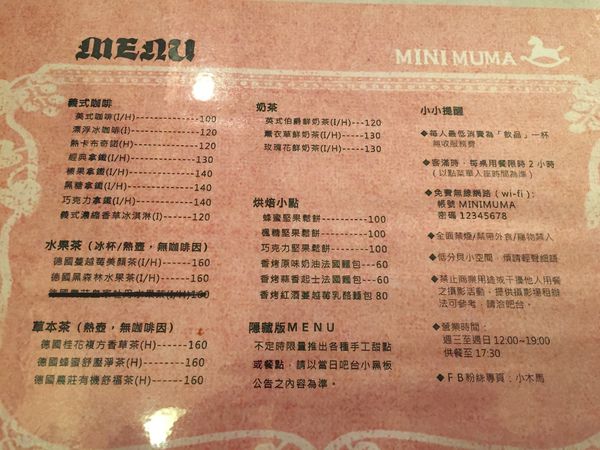 MENU
MINI MUMA
義式咖啡
美式咖啡(I/H)-----------100
漂浮冰咖啡(I)------------120
熱卡布奇諾(H)------------120
經典拿鐵(I/H)------------130
榛果拿鐵(I/H)------------140
黑糖拿鐵(I/H)------------140
巧克力拿鐵(I/H)----------140
義式濃縮香草冰淇淋(I)-----120
水果茶（冰杯/熱壺，無咖啡因）
德國蔓越莓美顏茶(I/H)-----160
德國黑森林水果茶(I/H)-----160
草本茶（熱壺，無咖啡因）
德國桂花複方香草茶(H)------160
德國蜂蜜舒壓淨茶(H)-------160
德國農莊有機舒福茶(H)------160
奶茶
英式伯爵鮮奶茶(I/H)---120
薰衣草鮮奶茶(I/H)-----130
玫瑰花鮮奶茶(I/H)-----130
烘焙小點
蜂蜜堅果鬆餅----------100
楓糖堅果鬆餅----------100
巧克力堅果鬆餅--------100
香烤原味奶油法國麵包----60
香烤蒜香起士法國麵包----60
香烤紅酒蔓越莓乳酪麵包 80
隱藏版MENU
不定時限量推出各種手工甜點
或餐點，請以當日吧台小黑板
公告之內容為準。
小小提醒
◆每人最低消費為「飲品」一杯
無收服務費
◆客滿時，每桌用餐限時 2 小時
（以點菜單入座時間為準）
◆免費無線網路（wi-fi）:
帳號 MINIMUMA
密碼 12345678
◆全面禁煙/禁帶外食/寵物禁入
◆低分貝小空間，煩請輕聲細語
◆禁止商業用途或干擾他人用餐
之攝影活動，提供攝影場租辦
法可參考，請洽吧台。
◆營業時間：
週三至週日 12:00~19:00
供餐至 17:30
◆FB粉絲專頁：小木馬